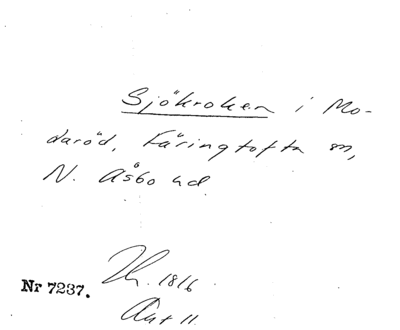 Sjökroken i Mo-
daröd, Färingtofta sn,
N. Åsbo hd.
Nr 7237.
1816
Akt 11.